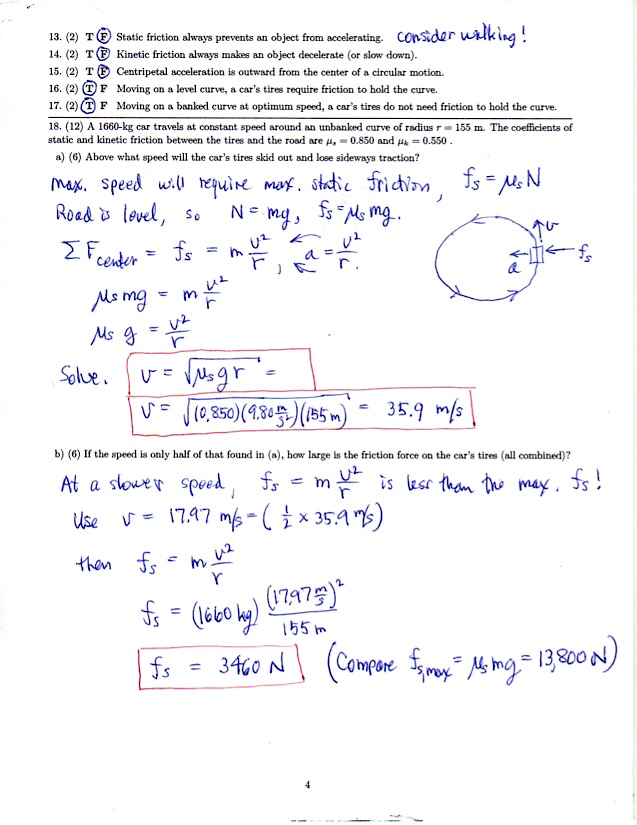 13. (2) T F Static friction always prevents an object from accelerating. consider walking!
14. (2) T F Kinetic friction always makes an object decelerate (or slow down).
15. (2) T F Centripetal acceleration is outward from the center of a circular motion.
16. (2) T F Moving on a level curve, a car's tires require friction to hold the curve.
17. (2) T F Moving on a banked curve at optimum speed, a car's tires do not need friction to hold the curve.
18. (12) A 1660-kg car travels at constant speed around an unbanked curve of radius r = 155 m. The coefficients of
static and kinetic friction between the tires and the road are μs = 0.850 and μk = 0.550 .
a) (6) Above what speed will the car's tires skid out and lose sideways traction?
max. speed will require max. static friction, fs = μsN
Road is level, so N = mg, fs = μs mg.
ΣFcenter = fs = m v²/r, a = v²/r.
v
a
fs
μs mg = m v²/r
μs g = v²/r
Solve. v = √(μs g r) =
v = √((0.850)(9.80 m/s²)(155 m)) = 35.9 m/s
b) (6) If the speed is only half of that found in (a), how large is the friction force on the car's tires (all combined)?
At a slower speed, fs = m v²/r is less than the max. fs!
Use v = 17.97 m/s = (1/2 x 35.9 m/s)
then fs = m v²/r
fs = (1660 kg) (17.97 m/s)²/155 m
fs = 3460 N (Compare fs,max = μs mg = 13,800 N)
4